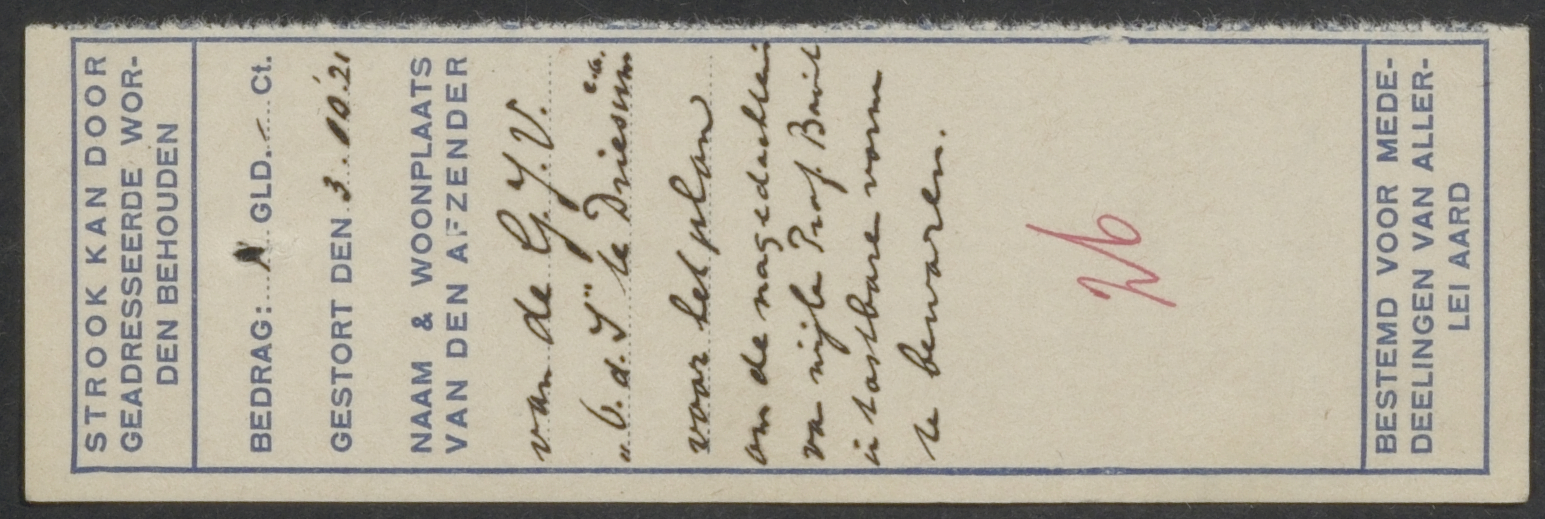 STROOK KAN DOOR
GEADRESSEERDE WOR-
DEN BEHOUDEN
BEDRAG: 1 GLD. - Ct.
GESTORT DEN 3.10.'21
NAAM & WOONPLAATS
VAN DEN AFZENDER
van de G.J.V.
te Driesum
voor het plan
om de nagedachtenis
van wijle Prof. Bavinck
in tastbare vorm
te bewaren.
BESTEMD VOOR MEDE-
DEELINGEN VAN ALLER-
LEI AARD